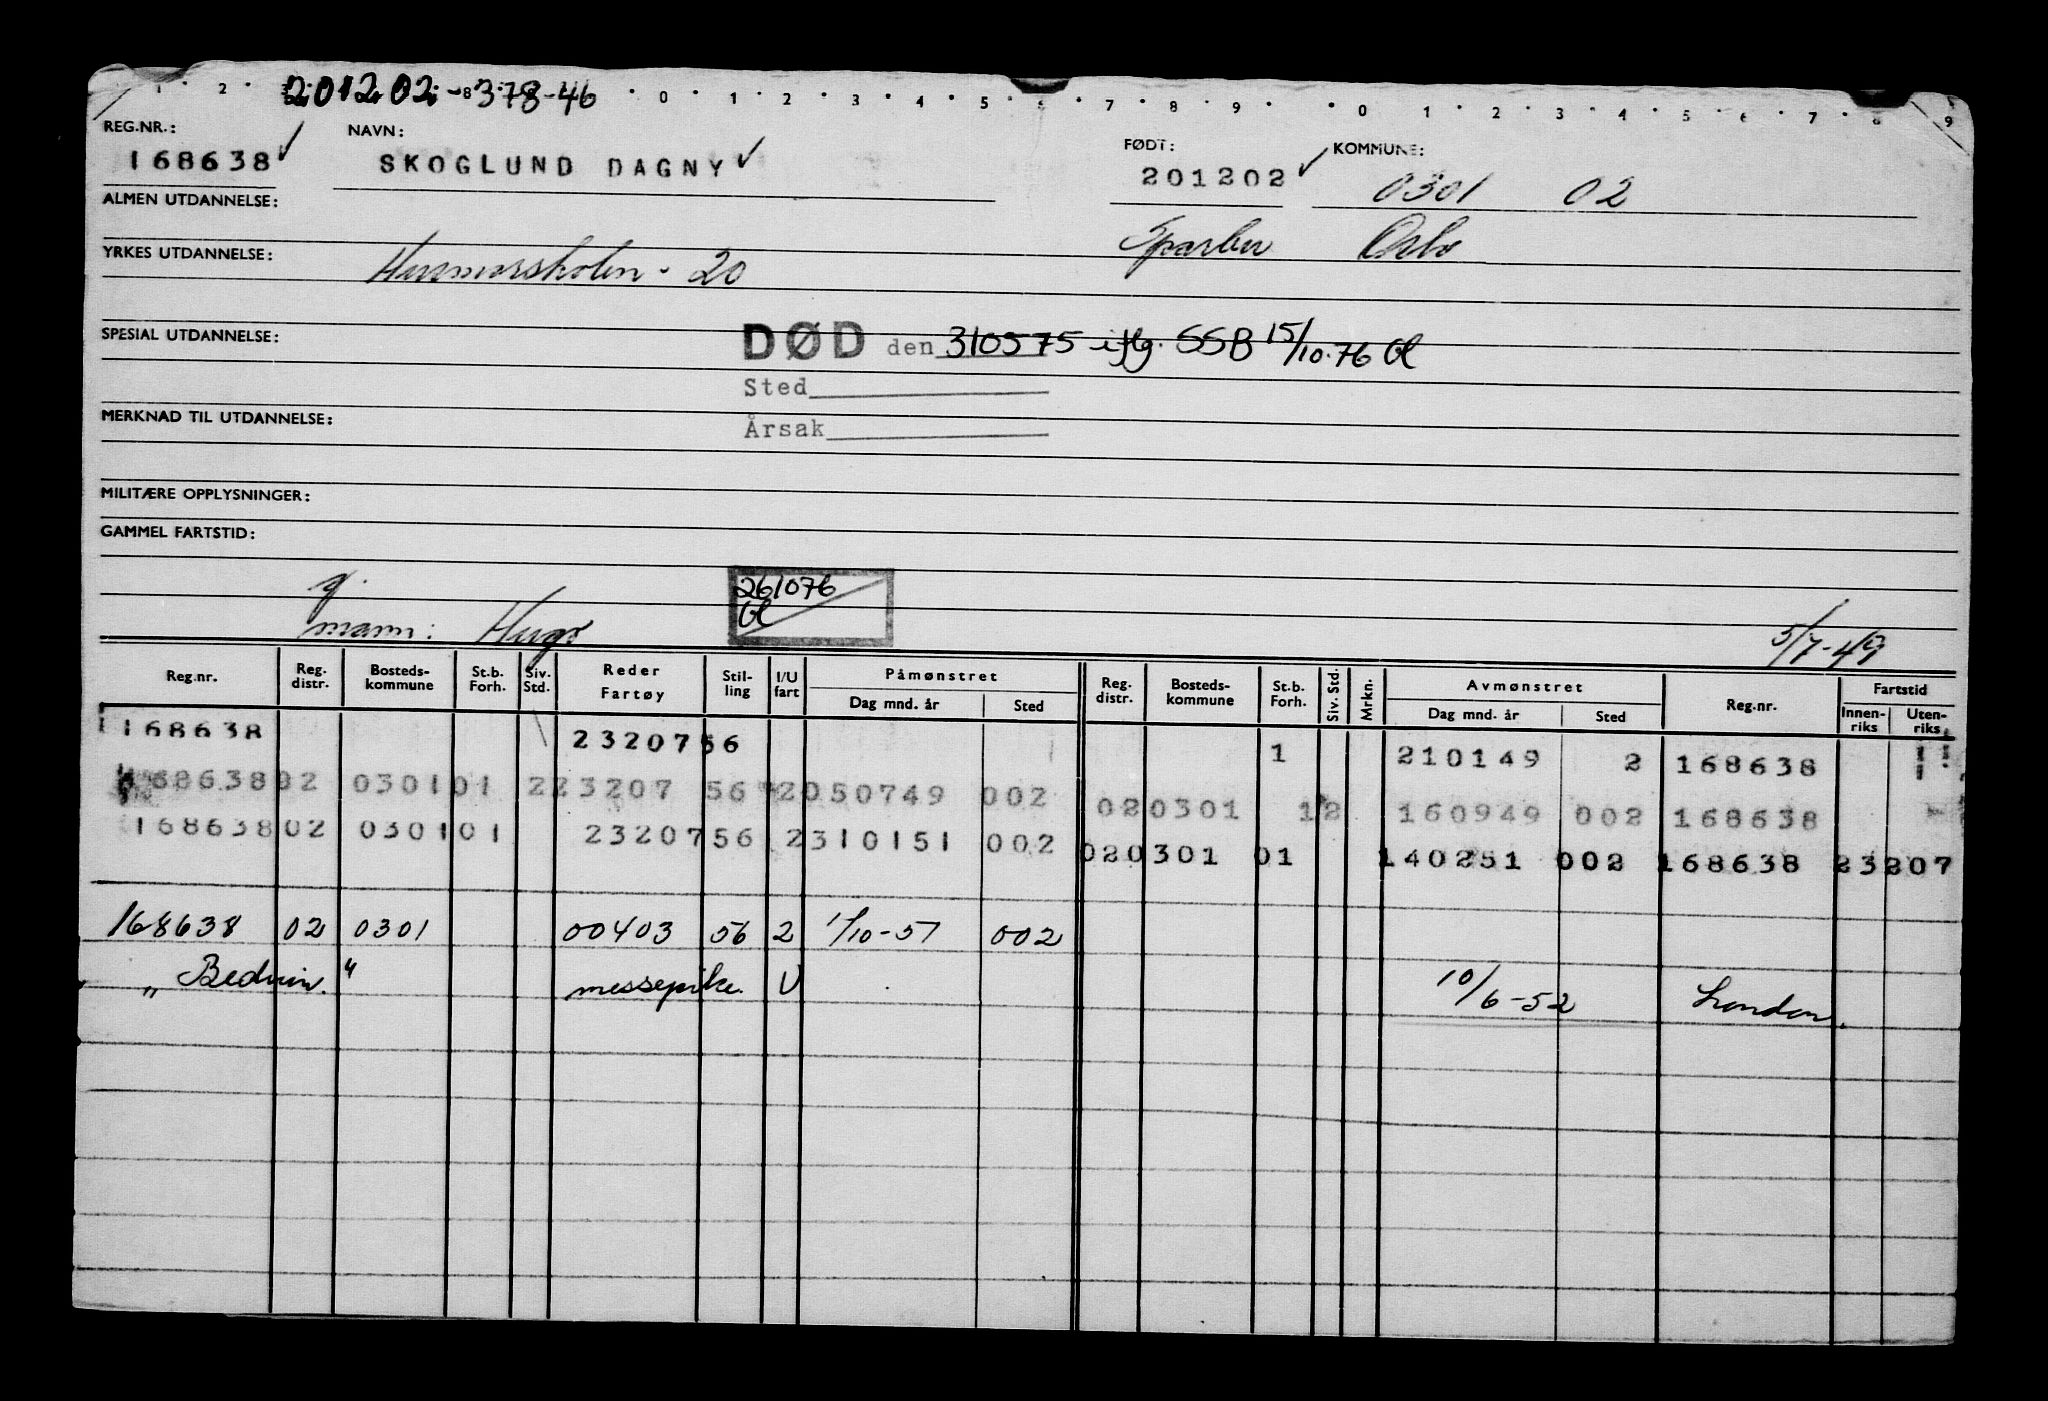 201202-378-46
1 2 8 0 1 2 3 4 5 6 7 8 9 0 1 2 3 4 5 6 7 8 9
REG.NR.: NAVN: FØDT: KOMMUNE:
168638 ✓ SKOGLUND DAGNY ✓ 201202 ✓ 0301 02
ALMEN UTDANNELSE:
Sparbu Oslo
YRKES UTDANNELSE: Husmorskolen - 20
SPESIAL UTDANNELSE: DØD den 310575 iflg. SSB 15/10.76
Sted
MERKNAD TIL UTDANNELSE: Årsak
MILITÆRE OPPLYSNINGER:
GAMMEL FARTSTID:
g. 261076
mann: Hugo 5/7-49
Reg.nr. Reg. distr. Bosteds-kommune St.b. Forh. Siv. Std. Reder Fartøy Stil-ling I/U fart Påmønstret Dag mnd. år Sted Reg. distr. Bosteds-kommune St.b. Forh. Siv. Std. Mrkn. Avmønstret Dag mnd. år Sted Reg.nr. Fartstid Innen-riks Uten-riks
168638 23207 56 1 210149 2 168638
16863802 030101 223207 56 2050749 002 020301 12 160949 002 168638
16863802 030101 23207 56 2310151 002 020301 01 140251 002 168638 23207
168638 02 0301 00403 56 2 1/10-51 002
"Beduin" messepike U 10/6-52 London.